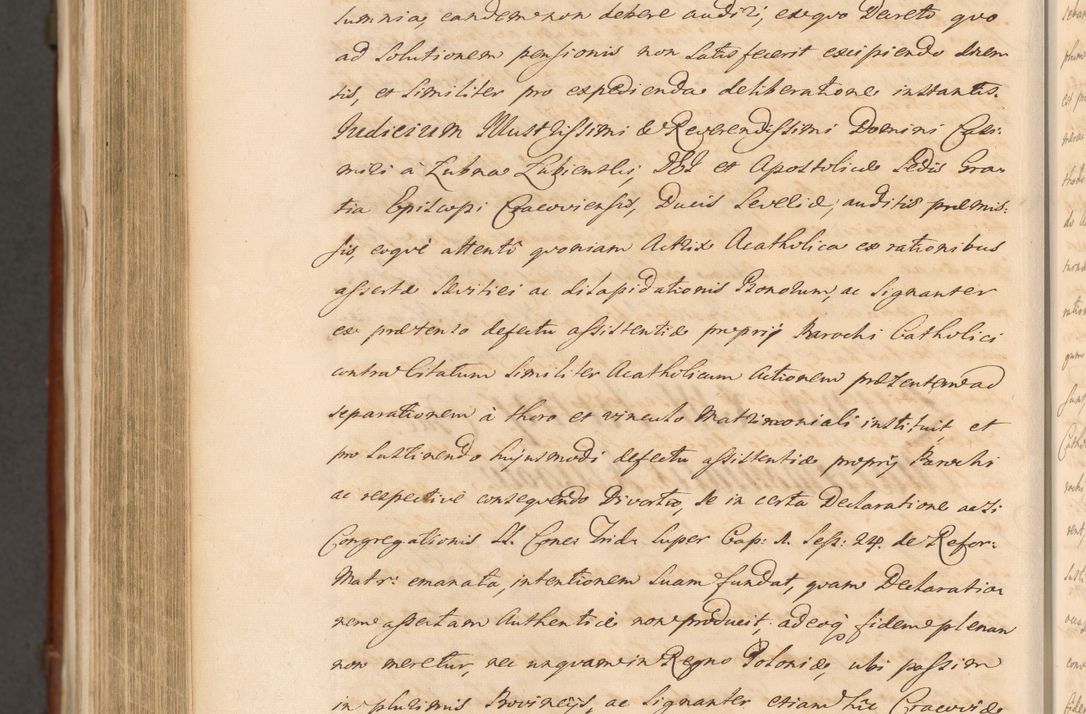 lumnia, eandem non debere audiri, ex quo Decreto quo
ad Solutionem pensionis non Satisfecerit excipiendo
tis, et Similiter pro expedienda deliberatione instantis.
Judicium Illustrissimi & Reverendissimi Domini Casi:
miri à Łubna Łubienski, DEI et Apostolicæ Sedis Gra
tia Episcopi Cracoviensis, Ducis Severiæ, auditis præmis:
sis, eoque attento quoniam Actrix Acatholica ex rationibus
assertæ Sævitiei ac dilapidationis Bonorum, ac Signanter
ex prætenso defectu assistentiæ proprij Parochi Catholici
contra Citatum Similiter Acatholicum Actionem præsentem ad
separationem à thoro et vinculo Matrimoniali instituit et
pro Sustinendo hujusmodi defectu assistentiæ proprij Parochi
ac respective consequendo Divortio, se in certa Declaratione
Congregationis SS. Conc: Trid: super Cap: 1. Sess: 24. de Refor:
Matr: emanata, intentionem Suam fundat, quam Declaratio
nem assertam Authentice non producit, adeoq fidem plenan
non meretur, nec unquam in Regno Poloniæ, ubi passim
in plurimis Provincijs, ac Signanter etiam hic Cracoviæ